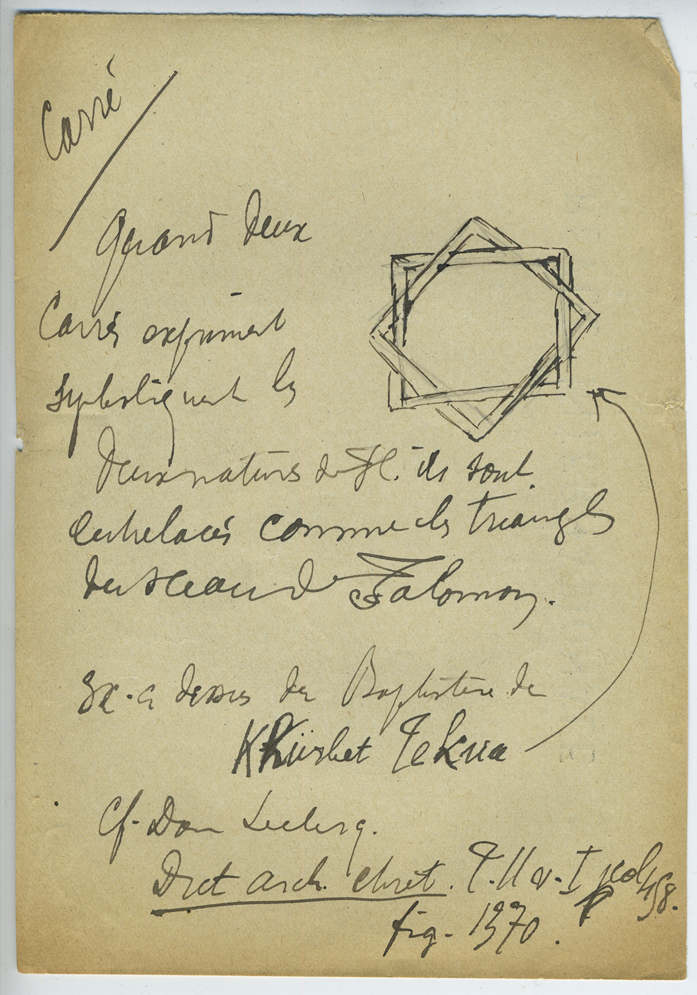 Carré
Quand deux
Carrés expriment
symboliquent les
deux natures de J.C. ils sont
entrelacés comme les triangles
du sceau de Salomon.
Ex. ce dessus du Baptistère de
Khirbet Tekua
Cf. Dom Leclerq.
Dict arch. chrét. T. II v. I col 458.
fig. 1370.